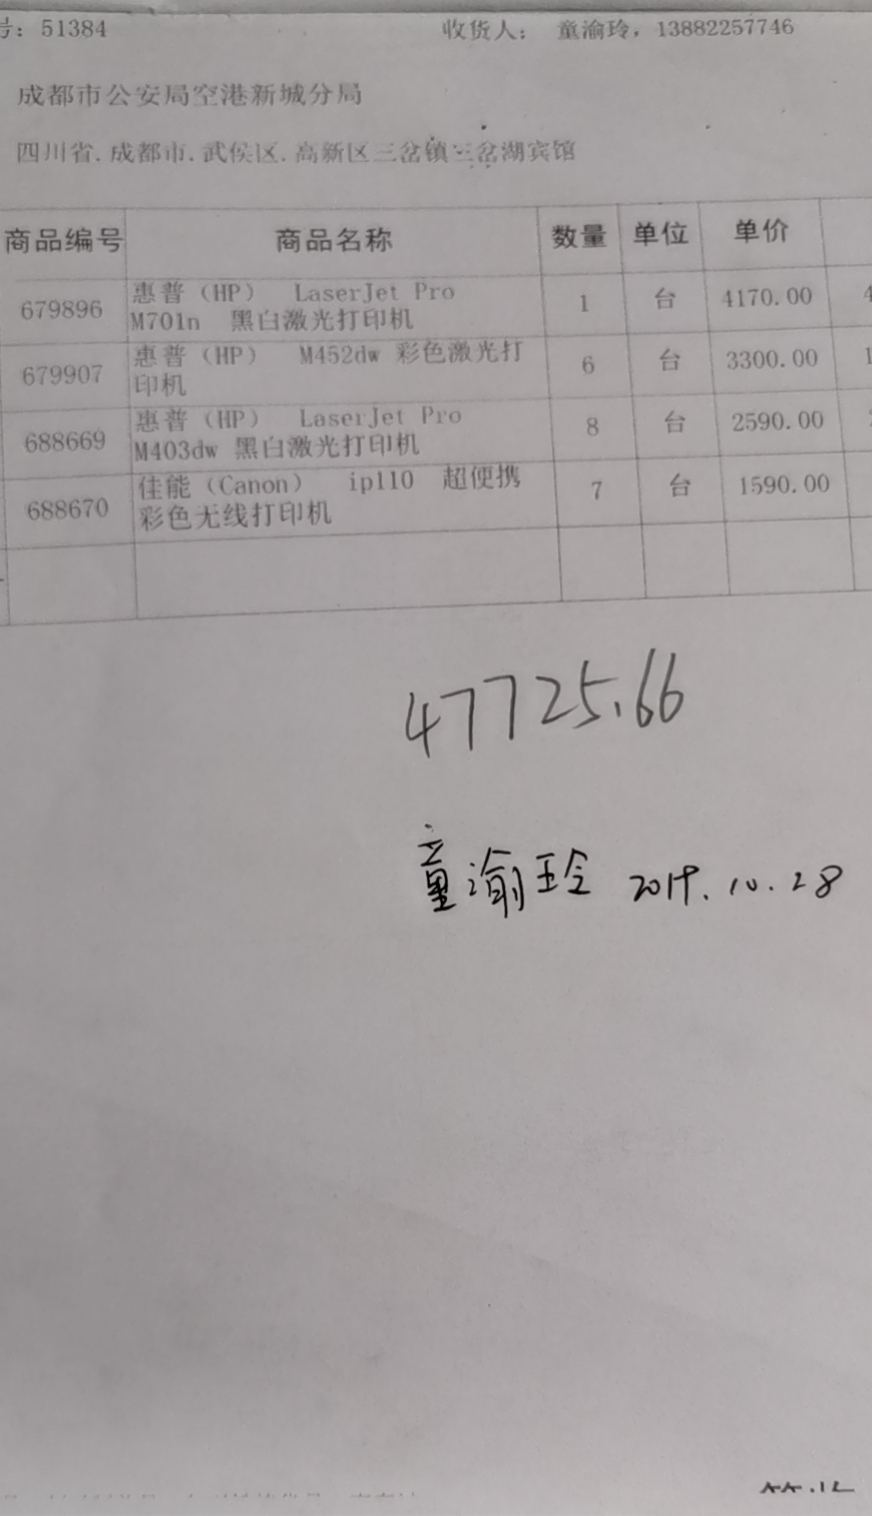 号：51384 收货人： 童渝玲，13882257746
成都市公安局空港新城分局
四川省.成都市.武侯区.高新区三岔镇三岔湖宾馆
商品编号 商品名称 数量 单位 单价
679896 惠普（HP） LaserJet Pro M701n 黑白激光打印机 1 台 4170.00 4
679907 惠普（HP） M452dw 彩色激光打印机 6 台 3300.00 1
688669 惠普（HP） LaserJet Pro M403dw 黑白激光打印机 8 台 2590.00
688670 佳能（Canon） ip110 超便携彩色无线打印机 7 台 1590.00
47725.66
童渝玲 2019.10.28